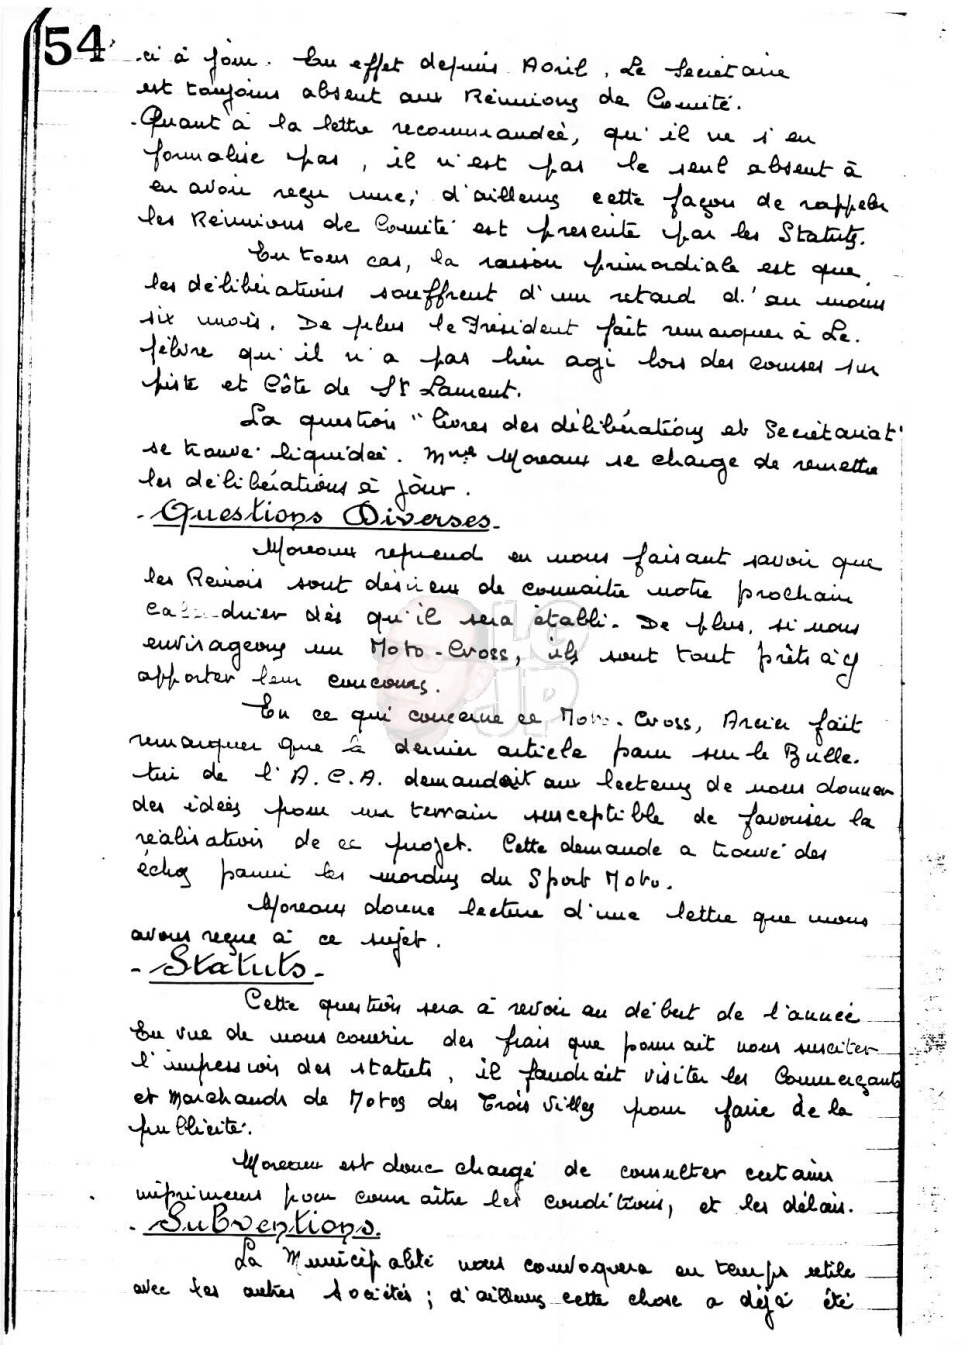 54
ci à jour. En effet depuis Avril, Le Secrétaire
est toujours absent aux Réunions de Comité.
- Quant à la lettre recommandée, qu'il ne s'en
formalise pas, il n'est pas le seul absent à
en avoir reçu une; d'ailleurs cette façon de rappeler
les Réunions de Comité est presente par les Statuts.
En tous cas, la raison primordiale est que
les délibérations souffrent d'un retard d'au moins
six mois. De plus le Président fait remarquer à Le-
febvre qu'il n'a pas bien agi lors des courses sur
piste et Côte de St Laurent.
La question "livres des délibérations et Secrétariat"
se trouve liquidée. Mme Moreaux se charge de remettre
les délibérations à jour.
- Questions Diverses -
Moreaux reprend en nous faisant savoir que
les Remois sont désireux de connaitre notre prochain
calendrier dès qu'il sera établi. De plus, si nous
envisageons un Moto-Cross, ils sont tout prêts à y
apporter leur concours.
En ce qui concerne ce Moto-Cross, Arcier fait
remarquer que le dernier article paru sur le Bulle-
tin de l'A.C.A. demandait aux lecteurs de nous donner
des idées pour un terrain susceptible de favoriser la
réalisation de ce projet. Cette demande a trouvé des
échos parmi les mordus du Sport Moto.
Moreaux donne lecture d'une lettre que nous
avons reçue à ce sujet.
- Statuts -
Cette question sera à revoir au début de l'année
En vue de nous couvrir des frais que pourrait nous susciter
l'impression des statuts, il faudrait visiter les Commerçants
et Marchands de Motos des Trois Villes pour faire de la
publicité.
Moreaux est donc chargé de consulter certains
imprimeurs pour connaître les conditions, et les délais.
- Subventions.
La Municipalité nous convoquera en temps utile
avec les autres Sociétés; d'ailleurs cette chose a déjà été
LC
JP